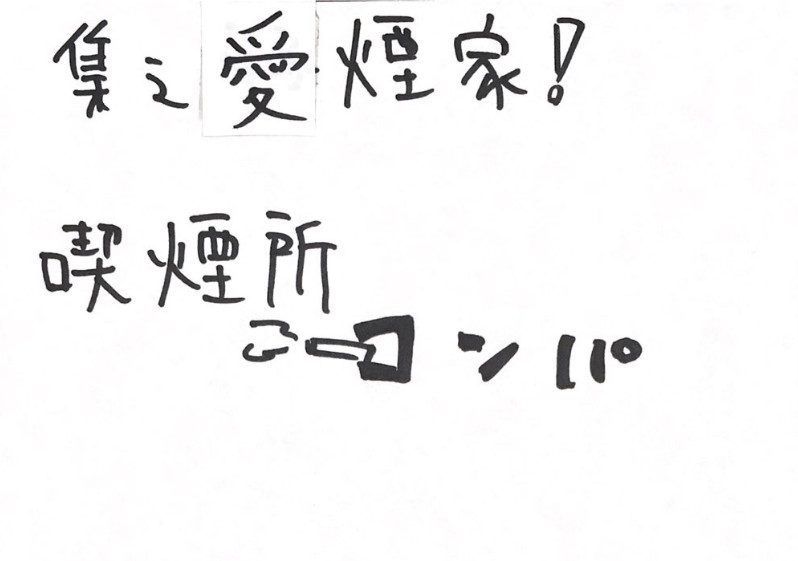 集え愛煙家!
喫煙所
ごーコンパ